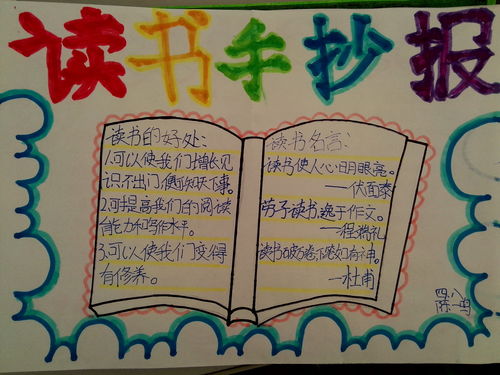 读书手抄报
读书的好处：
1.可以使我们增长见
识，不出门，便可知天下事。
2.可提高我们的阅读
能力和写作水平。
3.可以使我们变得
有修养。
读书名言：
读书使人心明眼亮。
——伏尔泰
劳于读书，逸于作文。
——程端礼
读书破万卷，下笔如有神。
——杜甫
四.八